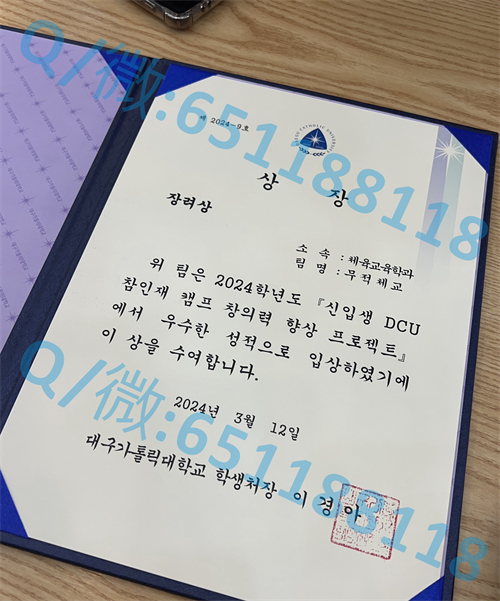 Q/微:651188118
제 2024-9호
상 장
장려상
소 속 : 체육교육학과
팀 명 : 무적체교
위 팀은 2024학년도 『신입생 DCU
참인재 캠프 창의력 향상 프로젝트』
에서 우수한 성적으로 입상하였기에
이 상을 수여합니다.
Q/微:651188118
2024년 3월 12일
대구가톨릭대학교 학생처장 이 경 아